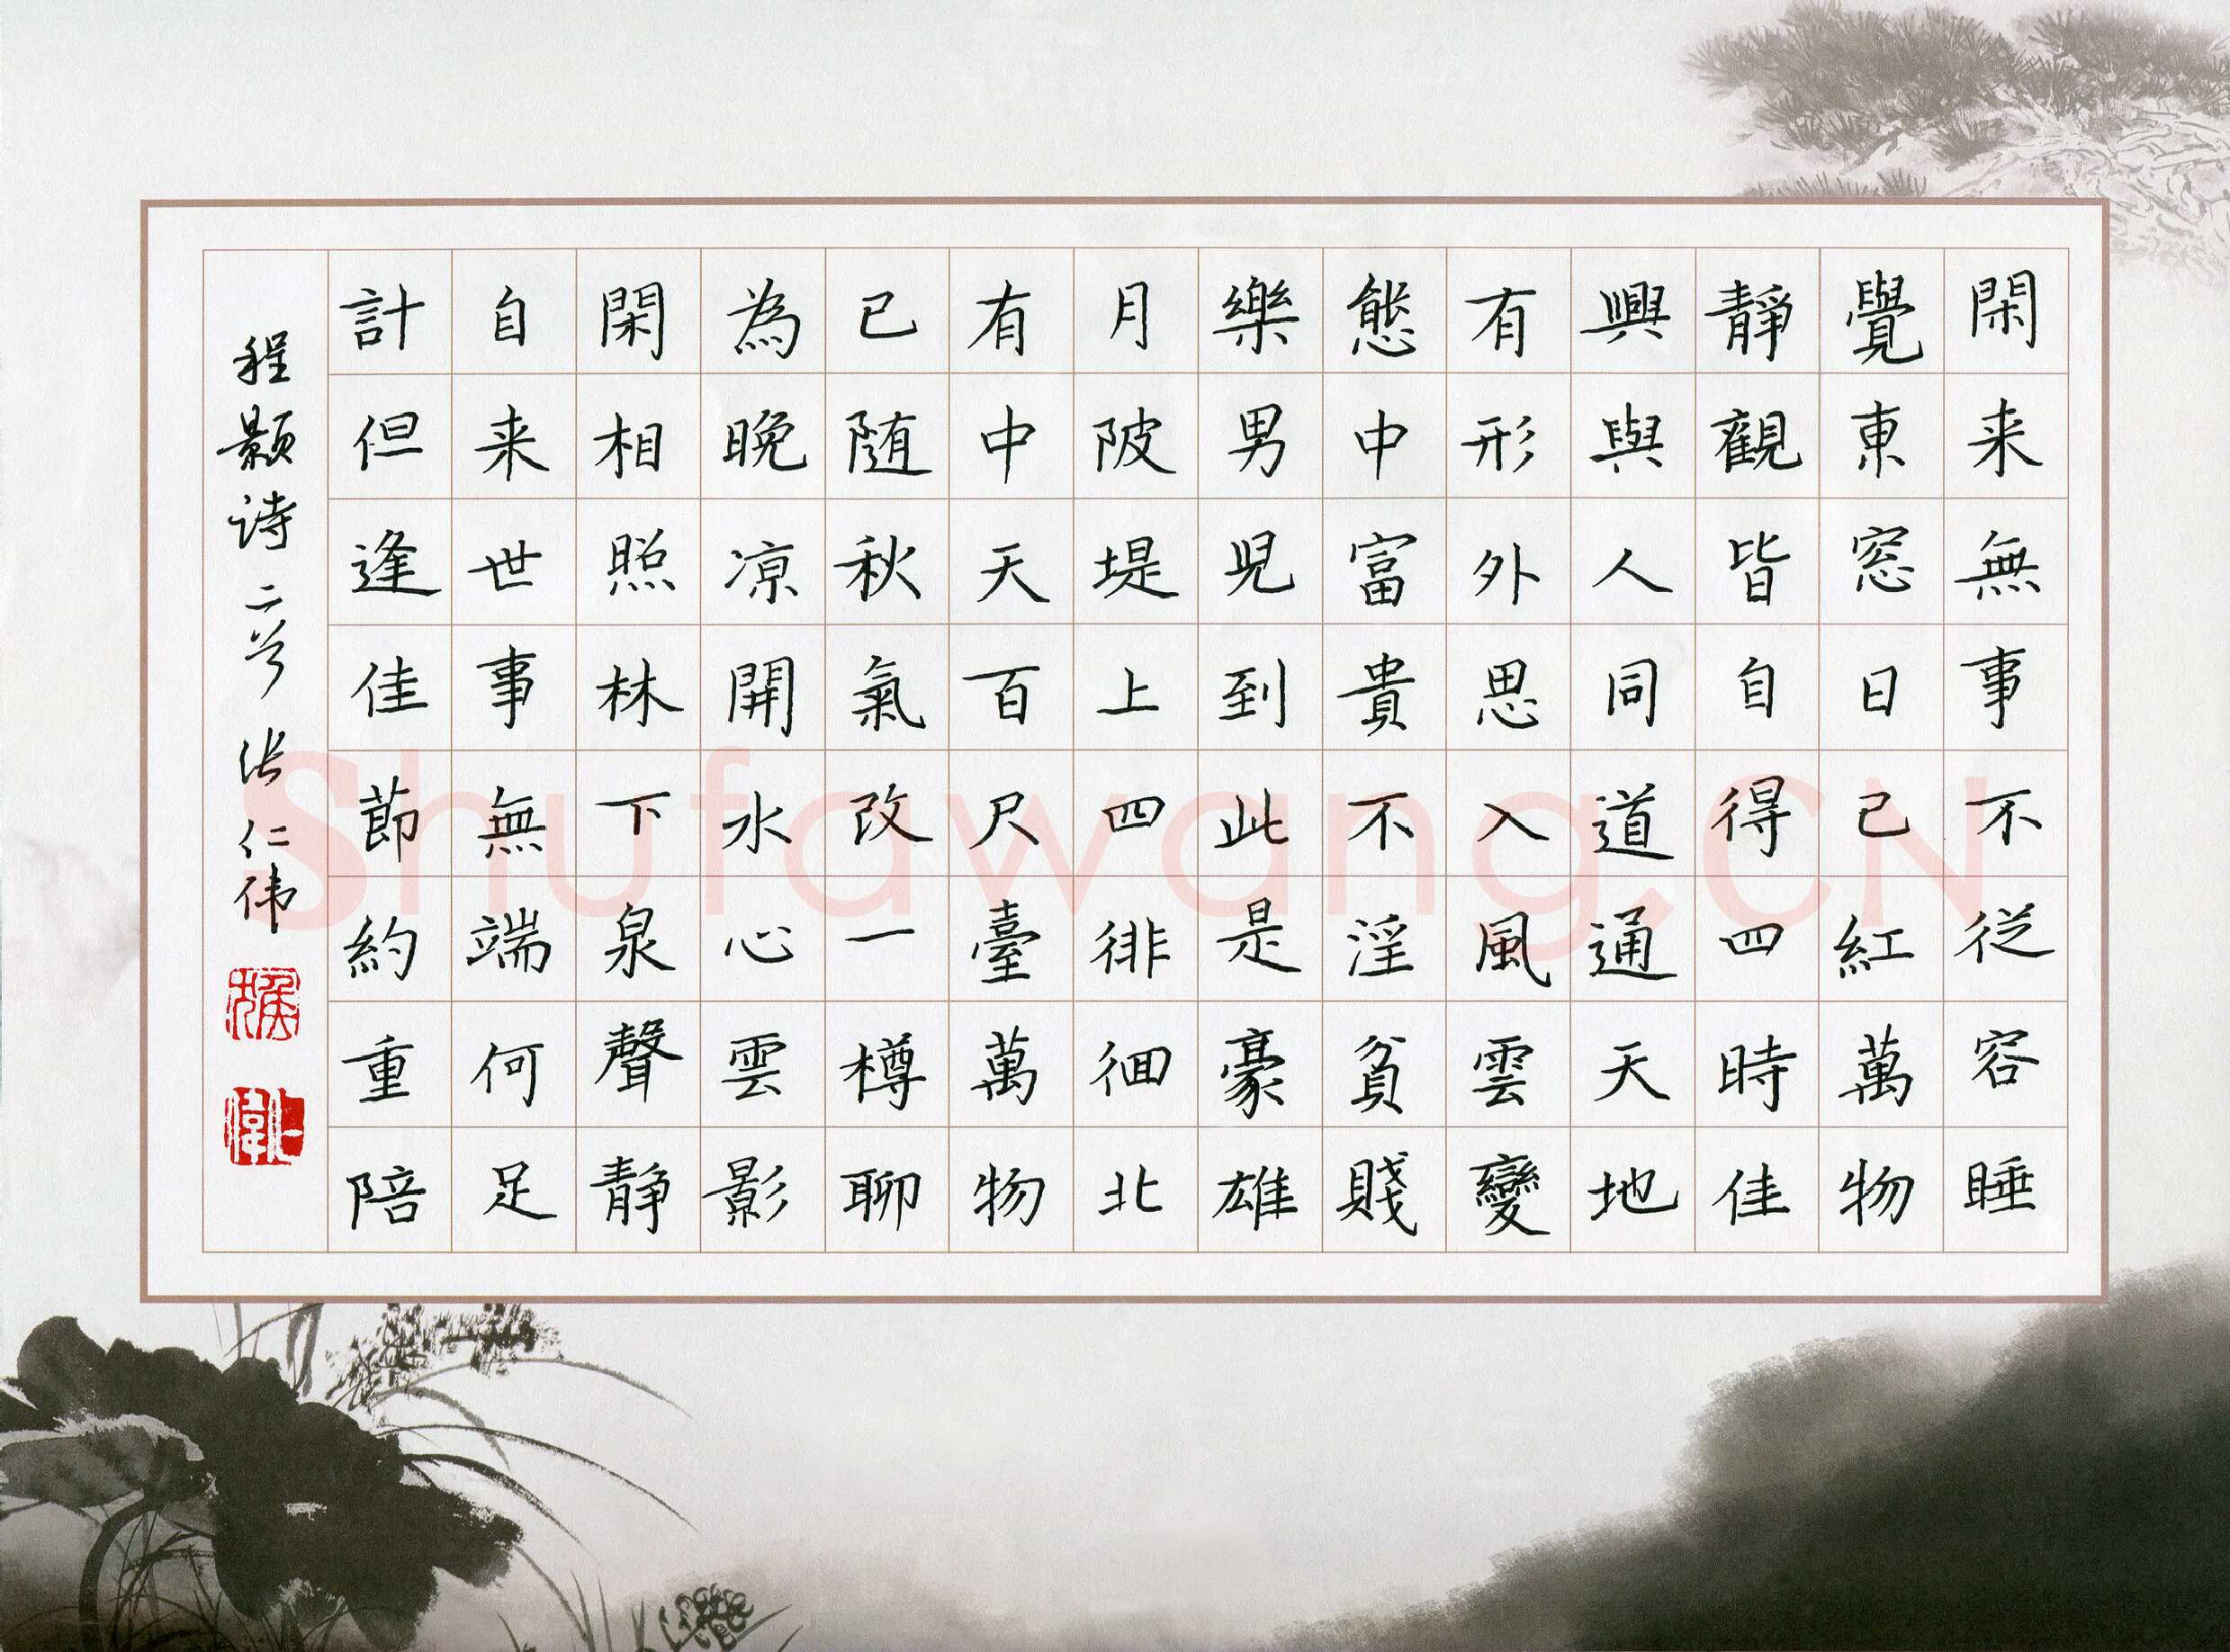 閑来無事不從容睡
覺東窓日已紅萬物
靜觀皆自得四時佳
興與人同道通天地
有形外思入風雲變
態中富貴不淫貧賤
樂男兒到此是豪雄
月陂堤上四徘徊北
有中天百尺臺萬物
已随秋氣改一樽聊
為晚凉開水心雲影
閑相照林下泉聲静
自来世事無端何足
計但逢佳節約重陪
程颢诗二首 张仁伟
Shufawang.CN